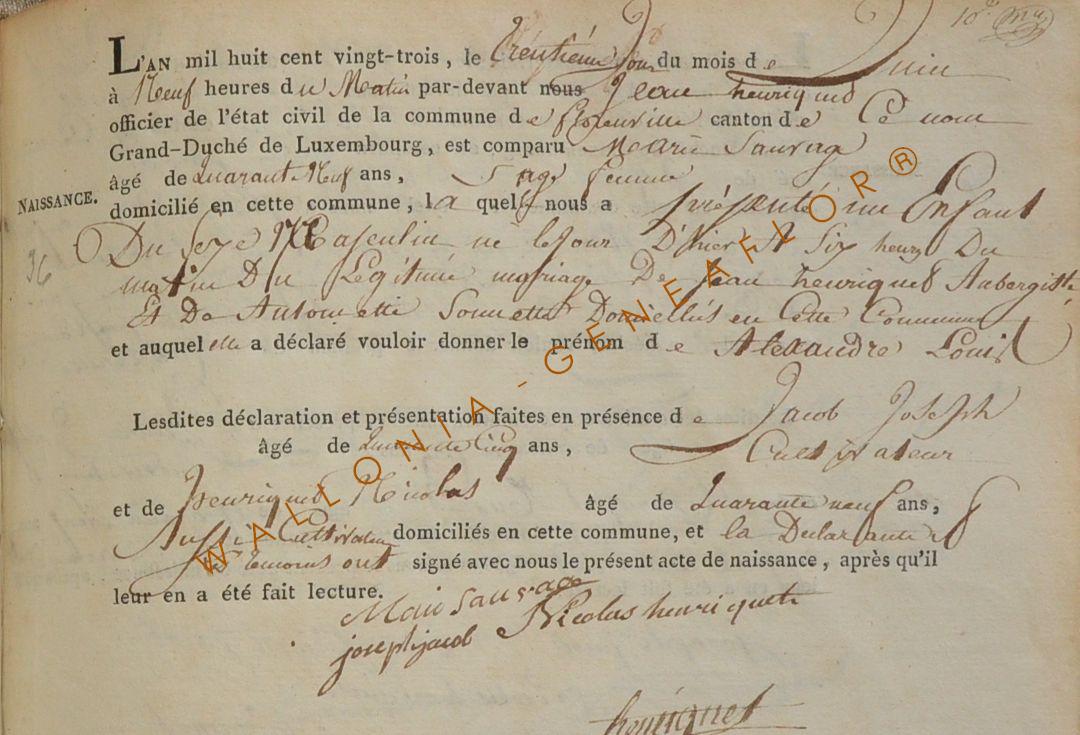 L'AN mil huit cent vingt-trois, le trentieme jour du mois de Juin
à Neuf heures du Matin par-devant nous Jean henriquet
officier de l'état civil de la commune de florenville canton de Ce nom
Grand-Duché de Luxembourg, est comparu Marie Sauvage
âgé de quarant Neuf ans, Sage femme
NAISSANCE. domicilié en cette commune, la quelle nous a présenté un Enfant
36 Du Sexe Masculin né le jour D'hier A Six heures Du
matin Du Légitime mariage De Jean henriquet Aubergiste
Et De Antoinette Sonnette Domicillés en Cette Commune
et auquel elle a déclaré vouloir donner le prénom de Alexandre Louis
Lesdites déclaration et présentation faites en présence de Jacob Joseph
âgé de Cinq ans, Cultivateur
et de henriquet Nicolas âgé de Quarante neuf ans,
Aussi Cultivateur domiciliés en cette commune, et la Declarante et
les temoins ont signé avec nous le présent acte de naissance, après qu'il
leur en a été fait lecture.
Marie Sauvage
joseph jacob Nicolas henriquet
henriquet
WALLONIA-GENEAFLOR®